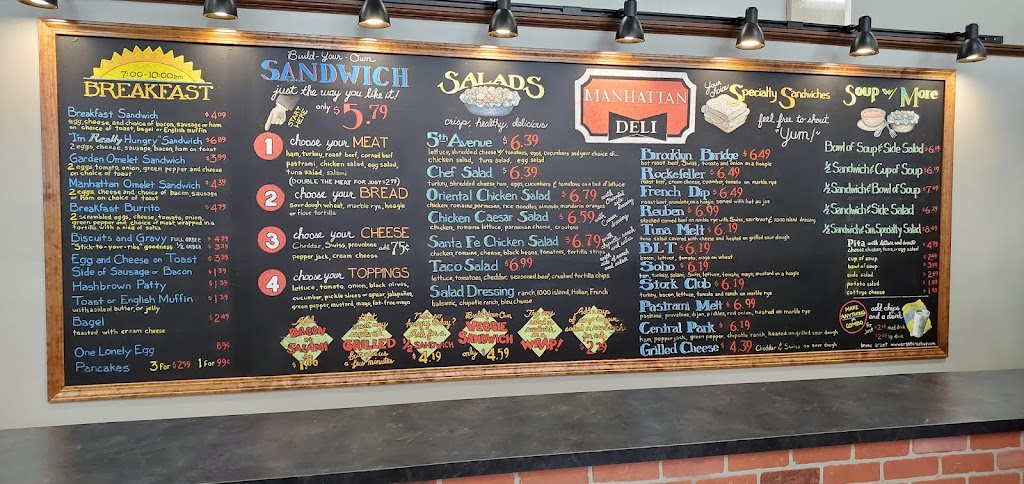 7:00-10:00am
BREAKFAST
Breakfast Sandwich $4.09
egg, cheese, and choice of bacon, sausage or ham
on choice of toast, bagel or English muffin
"I'm Really Hungry" Sandwich $6.89
2 eggs, cheese, sausage, bacon, ham on toast
Garden Omelet Sandwich $3.99
2 eggs, tomato, onion, green pepper and cheese
on choice of toast
Manhattan Omelet Sandwich $4.39
2 eggs, cheese and choice of bacon, sausage
or Ham on choice of toast
Breakfast Burrito $4.79
2 scrambled eggs, cheese, tomato, onion,
green pepper and choice of meat, wrapped in a
tortilla with a side of salsa
Biscuits and Gravy FULL ORDER
"Stick-to-your-ribs" goodness ½ ORDER
Egg and Cheese on Toast
Side of Sausage or Bacon
Hashbrown Patty
Toast or English Muffin
with a side of butter or jelly
Bagel $2.49
toasted with cream cheese
One Lonely Egg 89¢
Pancakes 3 For $2.59 1 For 99¢
Build-Your-Own
SANDWICH
just the way you like it!
only $5.79
START HERE
1 choose your MEAT
ham, turkey, roast beef, corned beef
pastrami, chicken salad, egg salad,
tuna salad, salami
(DOUBLE THE MEAT FOR JUST $2.79)
2 choose your BREAD
sourdough, wheat, marble rye, hoagie
or flour tortilla
3 choose your CHEESE
Cheddar, Swiss, provolone add 75¢
pepper jack, cream cheese
4 choose your TOPPINGS
lettuce, tomato, onion, black olives,
cucumber, pickle slices or spear, jalapeños,
green pepper, mustard, mayo, fat-free mayo
BACON
SALAMI
GRILLED
a few minutes
½ SANDWICH
$4.19
Build-Your-Own
VEGGIE
SANDWICH
only $4.59
WRAP!
SALADS
crisp, healthy, delicious
5th Avenue $6.39
lettuce, shredded cheese w/ tomatoes, eggs, cucumbers and your choice of...
chicken salad, tuna salad, egg salad
Chef Salad $6.39
turkey, shredded cheese, ham, eggs, cucumbers & tomatoes on a bed of lettuce
Oriental Chicken Salad $6.79
chicken, romaine, parmesan, rice noodles, almonds, mandarin oranges
Chicken Caesar Salad $6.59
chicken, romaine lettuce, parmesan cheese, croutons
Santa Fe Chicken Salad $6.79
chicken, romaine, cheese, black beans, tomatoes, tortilla strips
Taco Salad $6.99
lettuce, tomatoes, cheddar, seasoned beef, crushed tortilla chips
Salad Dressing ranch, 1000 island, Italian, French
balsamic, chipotle ranch, bleu cheese
MANHATTAN
DELI
Your choice
Specialty Sandwiches
feel free to shout
"Yum!"
Brooklyn Bridge $6.49
hot roast beef, Swiss, tomato and onion on a hoagie
Rockefeller $6.49
roast beef, cream cheese, cucumber, tomato on marble rye
French Dip $6.49
roast beef, provolone, on a hoagie, served with hot au jus
Reuben $6.99
Tuna Melt $6.19
tuna salad covered with cheese and heated on grilled sour dough
B-L-T $5.19
bacon, lettuce, tomato, mayo on wheat
Soho $6.19
ham, turkey, salami, Swiss, lettuce, tomato, mayo, mustard on a hoagie
Stork Club $6.19
turkey, bacon, lettuce, tomato and ranch on marble rye
Pastrami Melt $6.99
pastrami, provolone, dijon, pickles, red onion, heated on marble rye
Central Park $6.19
ham, pepper jack, green pepper, chipotle ranch, heated on grilled sour dough
Grilled Cheese $4.39 Cheddar & Swiss on sour dough
Soup w/ More
Bowl of Soup & Side Salad $6.19
½ Sandwich & Cup of Soup $6.19
½ Sandwich & Bowl of Soup
½ Sandwich & Side Salad
½ Sandwich & Sm. Specialty Salad
Pita with lettuce and tomato
chicken, tuna, or egg salad
cup of soup
bowl of soup
side salad
potato salad
cottage cheese
MAKE
ANYTHING
A
COMBO
add chips
and a drink